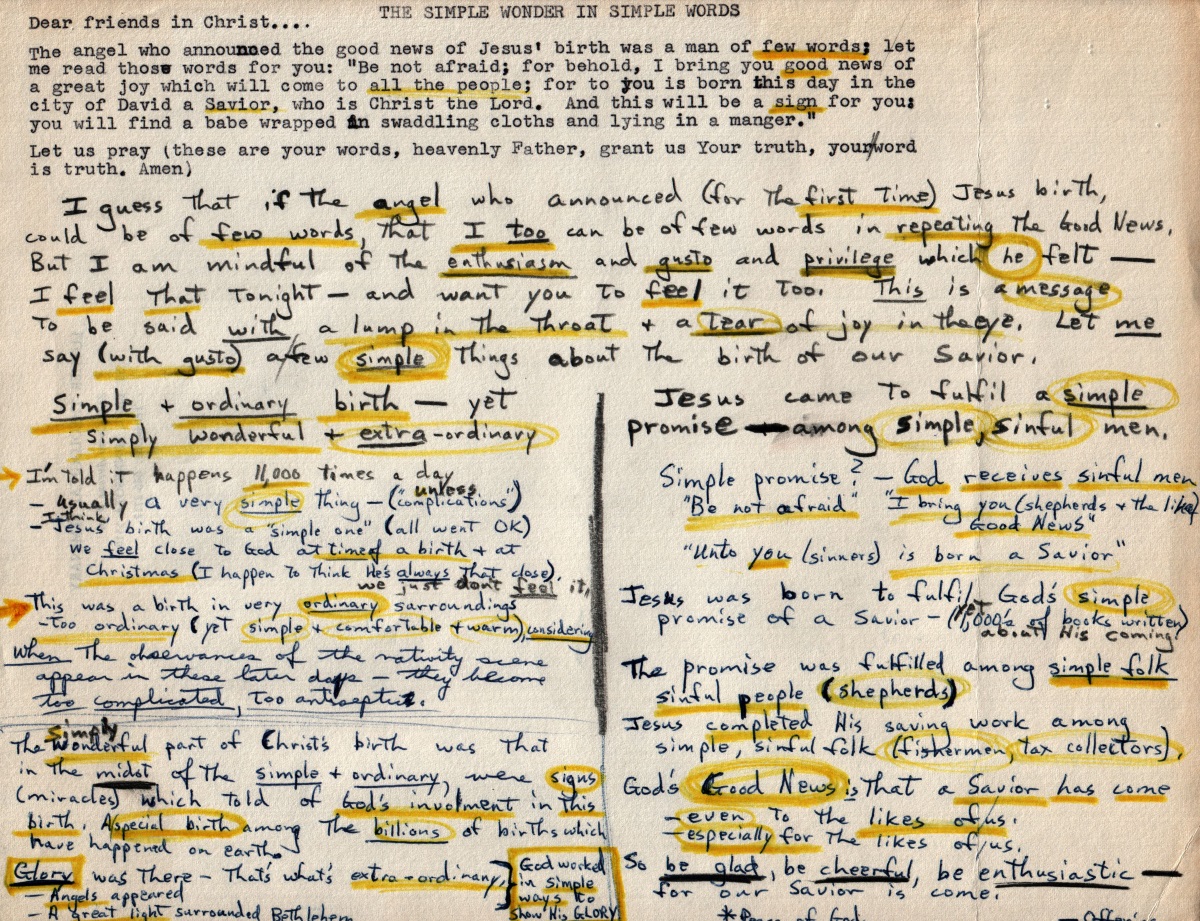 THE SIMPLE WONDER IN SIMPLE WORDS
Dear friends in Christ....
The angel who announned the good news of Jesus' birth was a man of few words; let
me read those words for you: "Be not afraid; for behold, I bring you good news of
a great joy which will come to all the people; for to you is born this day in the
city of David a Savior, who is Christ the Lord. And this will be a sign for you:
you will find a babe wrapped in swaddling cloths and lying in a manger."
Let us pray (these are your words, heavenly Father, grant us Your truth, your/word
is truth. Amen)
I guess that if the angel who announced (for the first time) Jesus birth,
could be of few words, that I too can be of few words in repeating the Good News.
But I am mindful of the enthusiasm and gusto and privilege which he felt —
I feel that tonight — and want you to feel it too. This is a message
to be said with a lump in the throat + a tear of joy in the eye. Let me
say (with gusto) a few simple things about the birth of our Savior.
Simple + ordinary birth — yet
simply wonderful + extra-ordinary
I'm told it happens 11,000 times a day
— usually a very simple thing — (unless "complications")
I think
— Jesus' birth was a "simple one" (all went OK)
we feel close to God at time of a birth + at
Christmas (I happen to think He's always that close),
we just don't feel it,
This was a birth in very ordinary surroundings
— too ordinary (yet simple + comfortable + warm), considering
when the observances of the nativity scene
appear in these later days — they become
too complicated, too antiseptic.
simply
The wonderful part of Christ's birth was that
in the midst of the simple + ordinary, were signs
(miracles) which told of God's involment in this
birth. A special birth among the billions of births which
have happened on earth.
Glory was there — That's what's extra-ordinary,
— Angels appeared
— A great light surrounded Bethlehem
God worked
in simple
ways to
show His GLORY
Jesus came to fulfil a simple
promise — among simple, sinful men.
Simple promise? — God receives sinful men
"Be not afraid" "I bring you (shepherds + the like)
Good News"
"Unto you (sinners) is born a Savior"
Jesus was born to fulfil God's simple
promise of a Savior — (yet 1,000's of books written
about His coming)
The promise was fulfilled among simple folk
sinful people (shepherds)
Jesus completed His saving work among
simple, sinful folk (fishermen, tax collectors).
God's Good News is that a Savior has come
— even to the likes of us.
— especially for the likes of us.
So be glad, be cheerful, be enthusiastic —
for our Savior is come.
*Peace of God